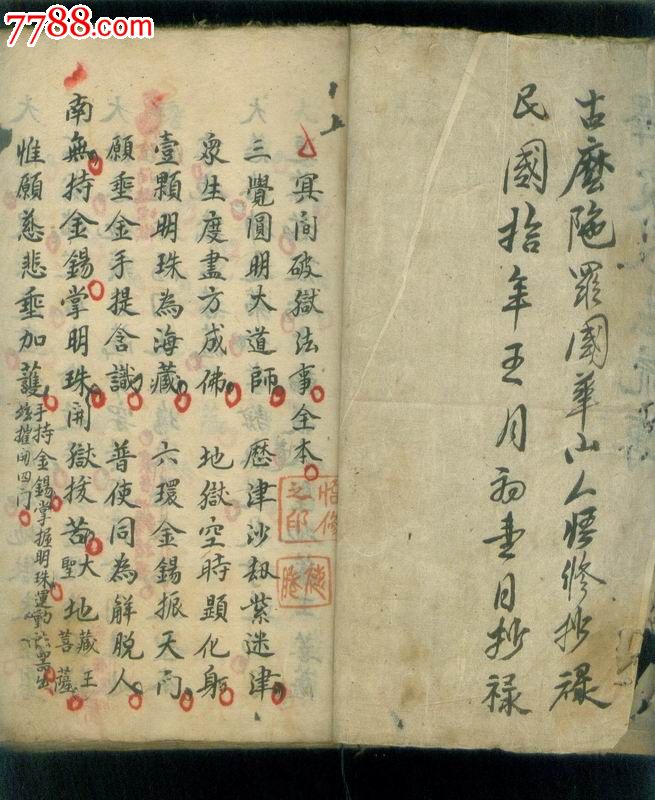 7788.com
中国收藏热线
古麼陁罗國華山人悟修抄禄
民國拾年五月初壹日抄禄
冥间破獄法事全本
三覺圓明大道師 歷津沙劫紫迷津
衆生度盡方成佛 地獄空時顯化身
壹顆明珠為海藏 六環金錫振天门
願垂金手提含識 普使同為解脱人
南無持金錫掌明珠開獄拔苦大聖地藏王菩薩
惟願慈悲垂加護
手持金錫掌握明珠運動
門四開
悟修之印